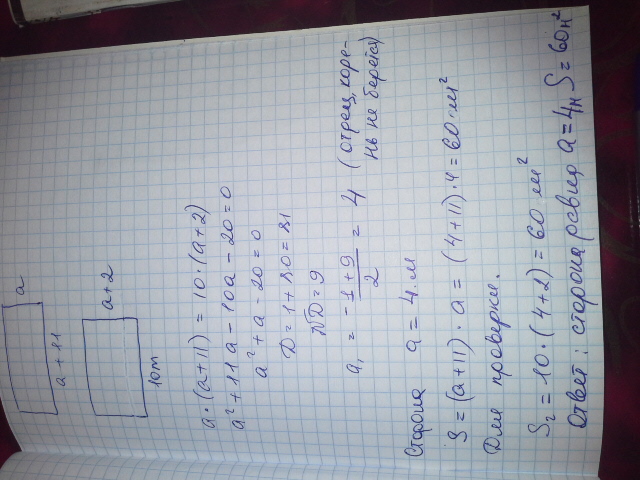 a
a + 11
a+2
10m
a·(a+11) = 10·(a+2)
a²+11a-10a-20=0
a²+a-20=0
D=1+80=81
√D=9
a₁ = -1+9/2 = 4 (отрец. коре-
нь не берется)
Сторона a=4·м
S=(a+11)·a=(4+11)·4=60·м²
Для проверки.
S₂=10·(4+2)=60 м²
Ответ: сторона равна a=4м S=60м²